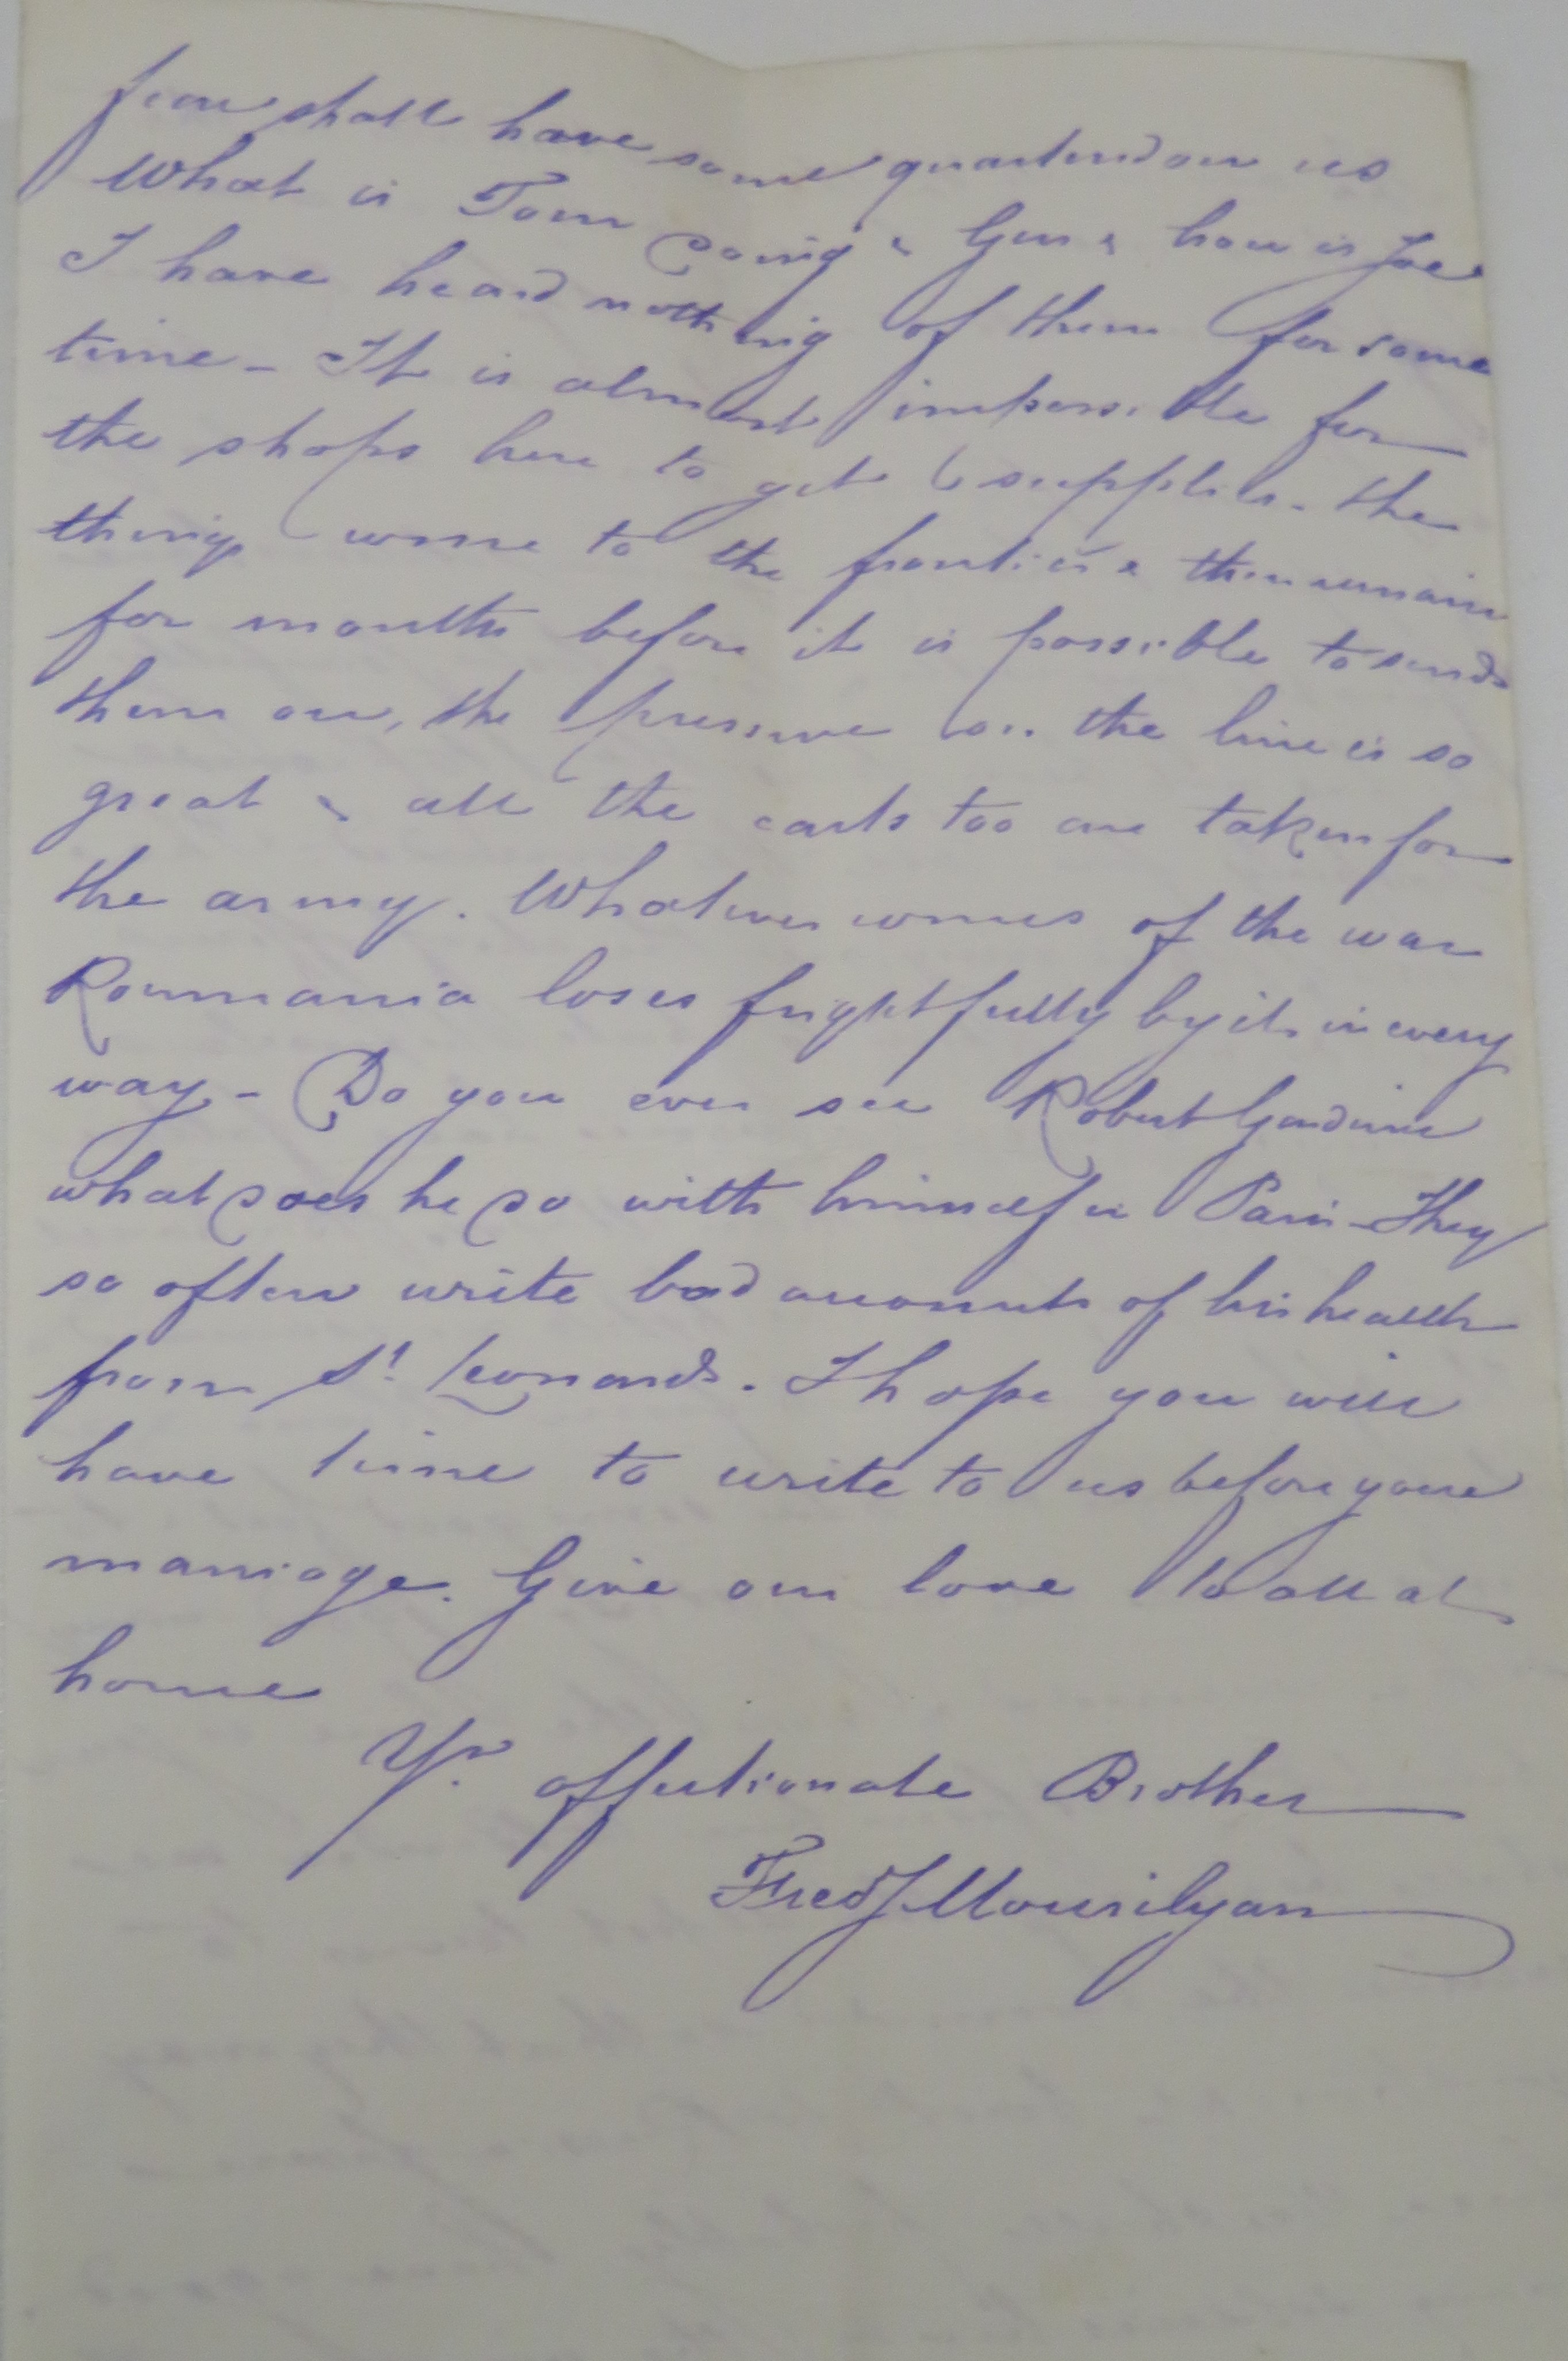 fear shall have some quartered on us
What is Tom doing & Gus & how is Joe
I have heard nothing of them for some
time - It is almost impossible for
the shops here to get supplies. the
things come to the frontier & then remain
for months before it is possible to send
them on, the pressure on the line is so
great & all the carts too are taken for
the army. Whatever comes of the war
Roumania loses frightfully by it in every
way - Do you ever see Robert Gardiner
what does he do with himself in Paris - They
so often write bad accounts of his health
from St Leonards. I hope you will
have time to write to us before your
marriage. Give our love to all at
home
Yr. affectionate Brother
Fred J Mourilyan